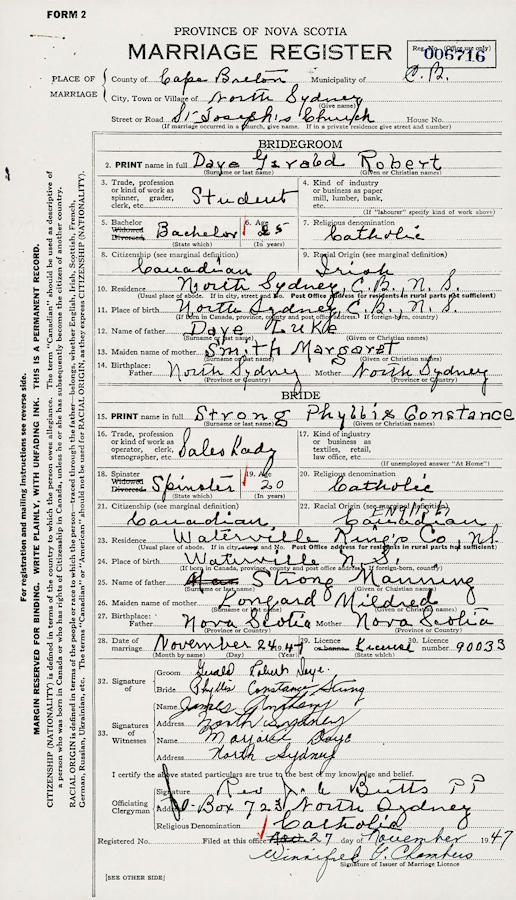 FORM 2
PROVINCE OF NOVA SCOTIA
MARRIAGE REGISTER
Reg. No. (Office use only)
006716
PLACE OF MARRIAGE
County of Cape Breton Municipality of C.B.
City, Town or Village of North Sydney
(Give name)
Street or Road St Joseph's Church House No.
(If marriage occurred in a church, give name. If in a private residence give street and number)
BRIDEGROOM
2. PRINT name in full Daye Gerald Robert
(Surname or last name) (Given or Christian names)
3. Trade, profession or kind of work as spinner, grader, clerk, etc. Student
4. Kind of industry or business as paper mill, lumber, bank, etc.
(If "labourer" specify kind of work above)
5. Bachelor Widowed Divorced Bachelor
(State which)
6. Age 25
(In years)
7. Religious denomination Catholic
8. Citizenship (see marginal definition) Canadian
9. Racial Origin (see marginal definition) Irish
10. Residence North Sydney, C.B., N.S.
(Usual place of abode. If in city, street and No. Post Office address for residents in rural parts not sufficient)
11. Place of birth North Sydney, C.B., N.S.
(If born in Canada, province, county and post office address. If foreign-born, country)
12. Name of father Daye Luke
(Surname or last name) (Given or Christian names)
13. Maiden name of mother Smith Margaret
(Surname or last name) (Given or Christian names)
14. Birthplace: Father North Sydney Mother North Sydney
(Province or Country) (Province or Country)
BRIDE
15. PRINT name in full Strong Phyllis Constance
(Surname or last name) (Given or Christian names)
16. Trade, profession or kind of work as operator, clerk, stenographer, etc. Sales Lady
17. Kind of industry or business as textiles, retail, law office, etc.
(If unemployed answer "At Home")
18. Spinster Widowed Divorced Spinster
(State which)
19. Age 20
(In years)
20. Religious denomination Catholic
21. Citizenship (see marginal definition) Canadian
22. Racial Origin (see marginal definition) Canadian
23. Residence Waterville King's Co, N.S.
(Usual place of abode. If in city, street and No. Post Office address for residents in rural parts not sufficient)
24. Place of birth Waterville N.S.
(If born in Canada, province, county and post office address. If foreign-born, country)
25. Name of father Strong Manning
(Surname or last name) (Given or Christian names)
26. Maiden name of mother Mildred
(Surname or last name) (Given or Christian names)
27. Birthplace: Father Nova Scotia Mother Nova Scotia
(Province or Country) (Province or Country)
28. Date of marriage November 24 1947
(Month by name) (Day) (Year)
29. Licence or banns License
(State which)
30. Licence number 90033
32. Signature of
Groom Gerald Robert Daye
Bride Phyllis Constance Strong
33. Signature of Witnesses
Name James
Address North Sydney
Name Marjorie Daye
Address North Sydney
I certify the above stated particulars are true to the best of my knowledge and belief.
Officiating Clergyman
Signature Rev Butts PP
Address Box 723 North Sydney
Religious Denomination Catholic
Registered No. Filed at this office Nov. 27 day of November 1947
Winnifred G. Chambers
Signature of Issuer of Marriage Licence
[SEE OTHER SIDE]
For registration and mailing instructions see reverse side.
MARGIN RESERVED FOR BINDING. WRITE PLAINLY, WITH UNFADING INK. THIS IS A PERMANENT RECORD.
CITIZENSHIP (NATIONALITY) is defined in terms of the country to which the person owes allegiance. The term "Canadian" should be used as descriptive of a person who was born in Canada or who has rights of Citizenship in Canada, unless he or she has subsequently become the citizen of another country.
RACIAL ORIGIN is defined in terms of the people or race to which the person—traced through the father—belongs, whether English, Irish, Scottish, French, German, Russian, Ukrainian, etc. The terms "Canadian" or "American" should not be used for RACIAL ORIGIN, as they express CITIZENSHIP (NATIONALITY).